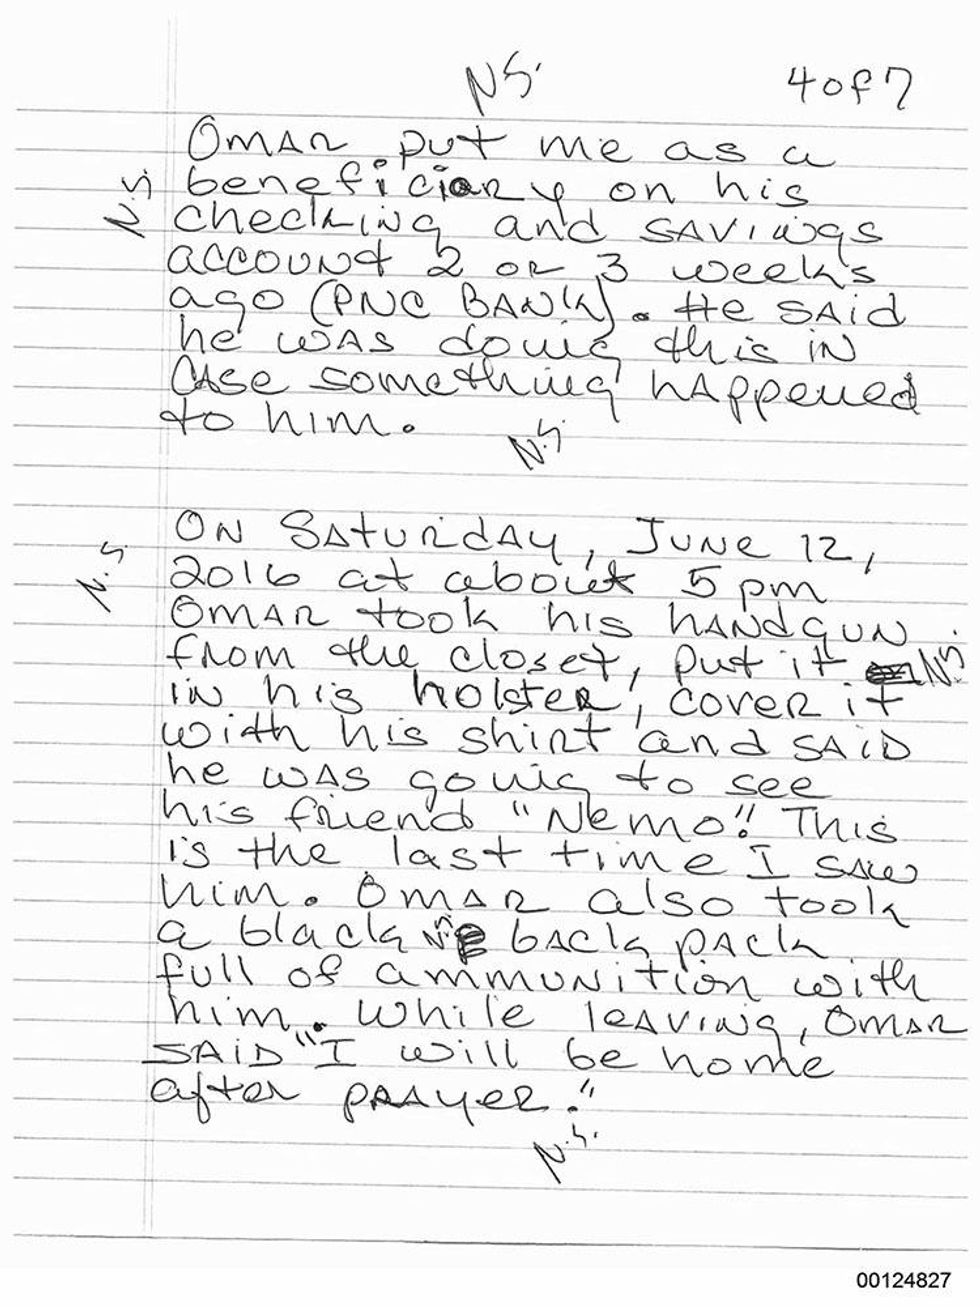 N.S. 4 of 7
Omar put me as a
N.S. beneficiary on his
checking and savings
account 2 or 3 weeks
ago (PNC Bank). He said
he was doing this in
case something happened
to him.
N.S.
On Saturday, June 12,
N.S. 2016 at about 5 pm
Omar took his handgun
from the closet, put it N.S.
in his holster, cover it
with his shirt and said
he was going to see
his friend "Nemo". This
is the last time I saw
him. Omar also took
a black N.S. back pack
full of ammunition with
him. While leaving, Omar
said "I will be home
after prayer."
N.S.
00124827